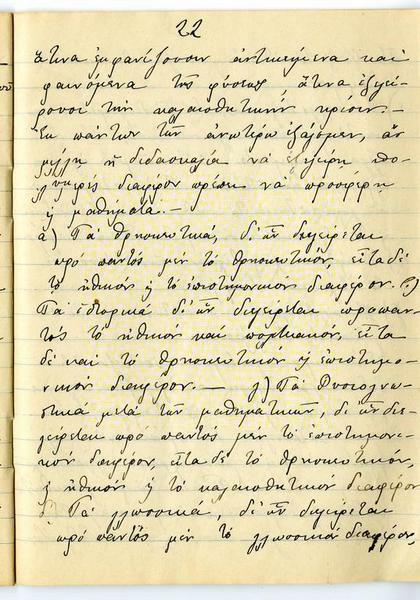 22
ἅτινα ἐμφανίζουσιν ἀντικείμενα καὶ
φαινόμενα τῆς φύσεως, ἅτινα ἐξεγεί-
ρουσι τὴν καλαισθητικὴν κρίσιν.—
Ἐκ πάντων τῶν ἀνωτέρω ἐξάγομεν, ἂν
μέλλῃ ἡ διδασκαλία νὰ ἐξεγείρῃ πο-
λυμερὲς διαφέρον πρέπει νὰ προσφέρῃ
ἡ μαθήματα.—
α) Τὰ θρησκευτικά, δι' ὧν διεγείρεται
πρὸ παντὸς μὲν τὸ θρησκευτικόν, εἶτα δὲ
τὸ ἠθικὸν ἢ τὸ ἐπιστημονικὸν διαφέρον. β)
Τὰ ἱστορικὰ δι' ὧν διεγείρεται πρὸ παν-
τὸς τὸ ἠθικὸν καὶ πολιτικόν, εἶτα
δὲ καὶ τὸ θρησκευτικὸν ἢ ἐπιστημο-
νικὸν διαφέρον.— γ) Τὰ Φυσιογνω-
στικὰ μετὰ τῶν μαθηματικῶν, δι' ὧν διε-
γείρεται πρὸ παντὸς μὲν τὸ ἐπιστημονι-
κὸν διαφέρον, εἶτα δὲ τὸ θρησκευτικόν,
ἢ ἠθικὸν ἢ τὸ καλαισθητικὸν διαφέρον
δ) Τὰ γλωσσικά, δι' ὧν διεγείρεται
πρὸ παντὸς μὲν τὸ γλωσσικὸν διαφέρον,